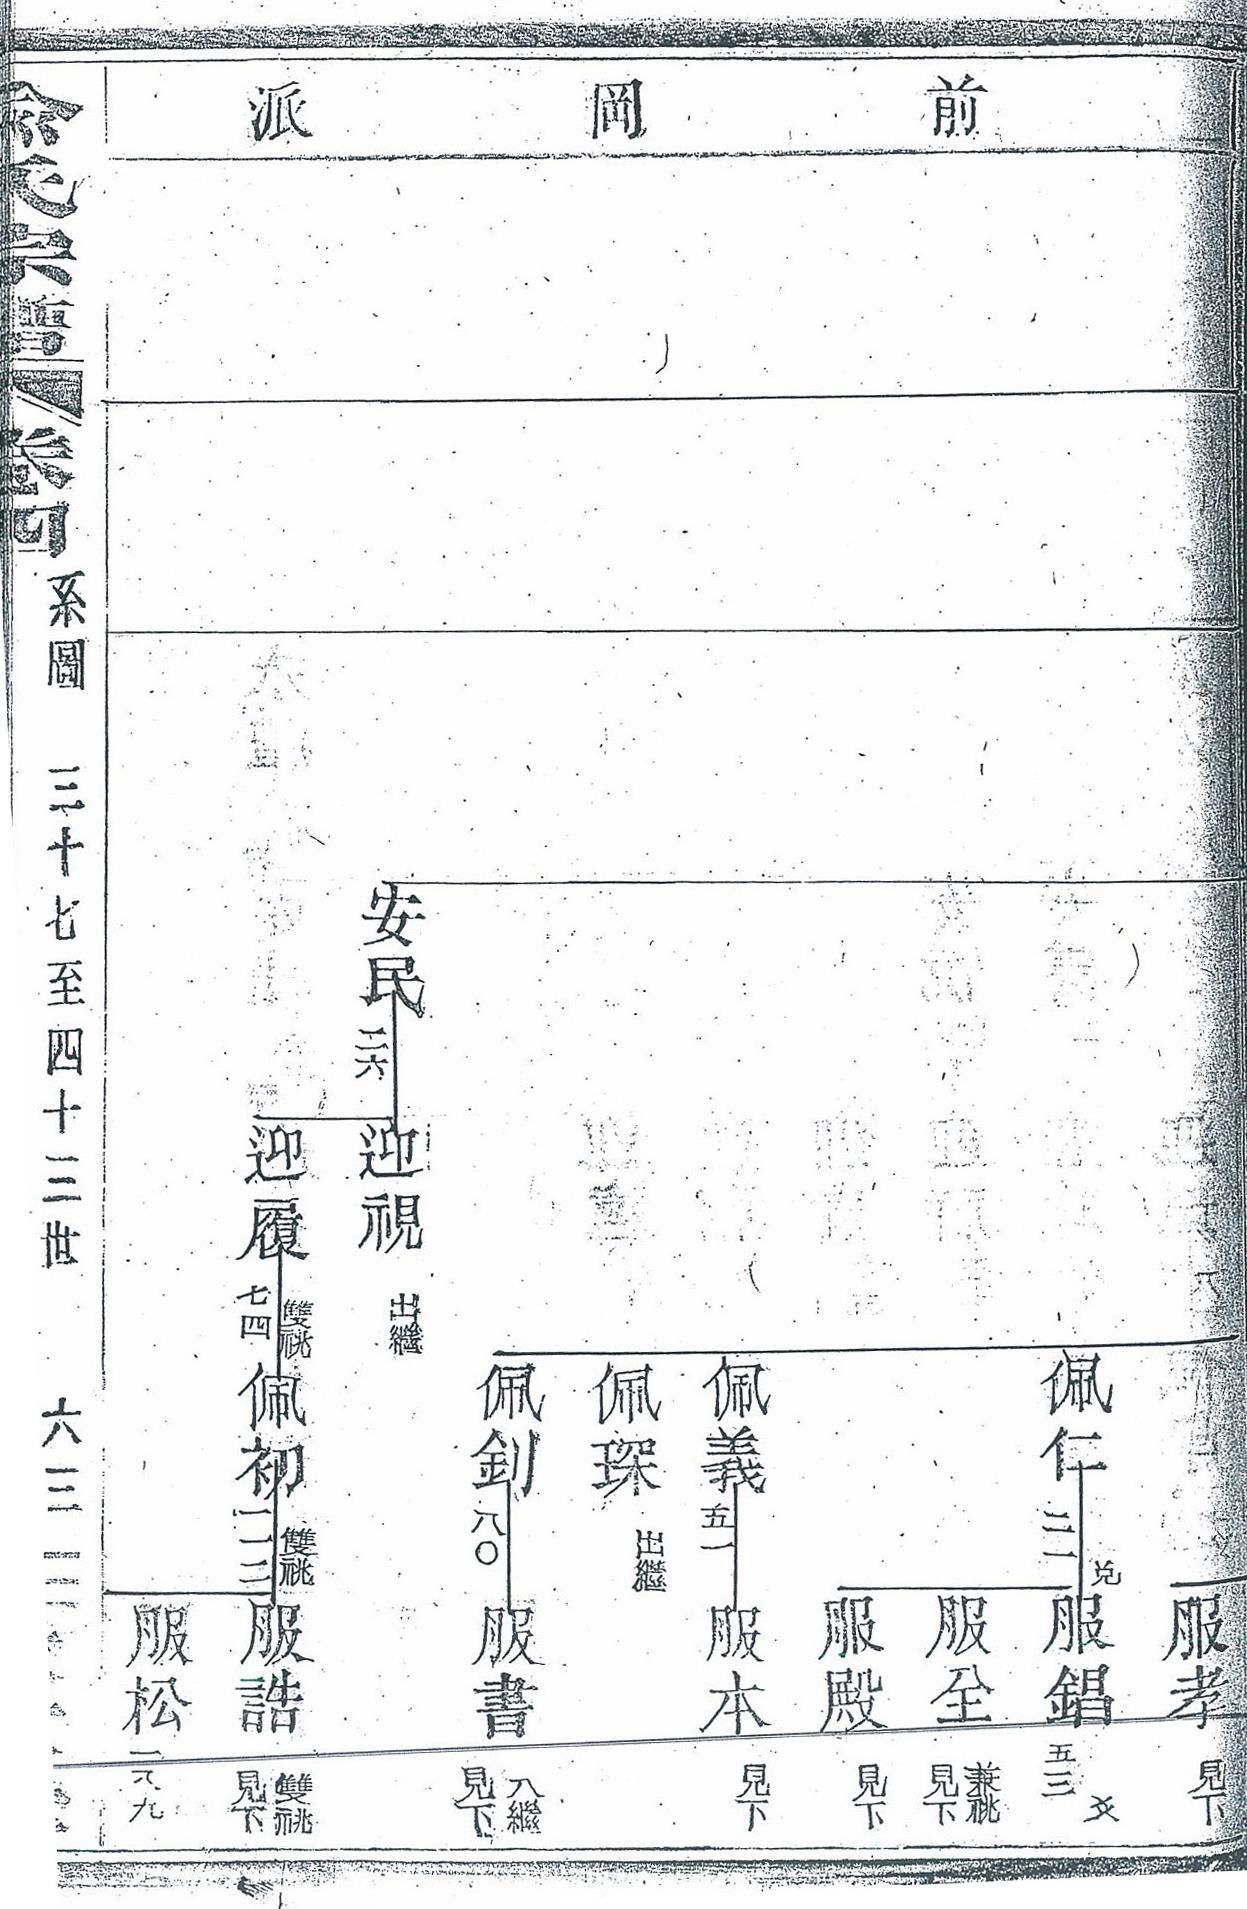 前岡派
安民
二六
迎視
出繼
迎履
七四
雙祧
佩仁
三一
兑
佩義
五一
佩琛
出繼
佩釗
八〇
佩初
一一二
雙祧
服孝
見下
服錩
五三
服全
兼祧
見下
服殿
見下
服本
見下
服書
入繼
見下
服誥
雙祧
見下
服松
氏宗譜
卷四
系圖
三十七至四十三世
六三